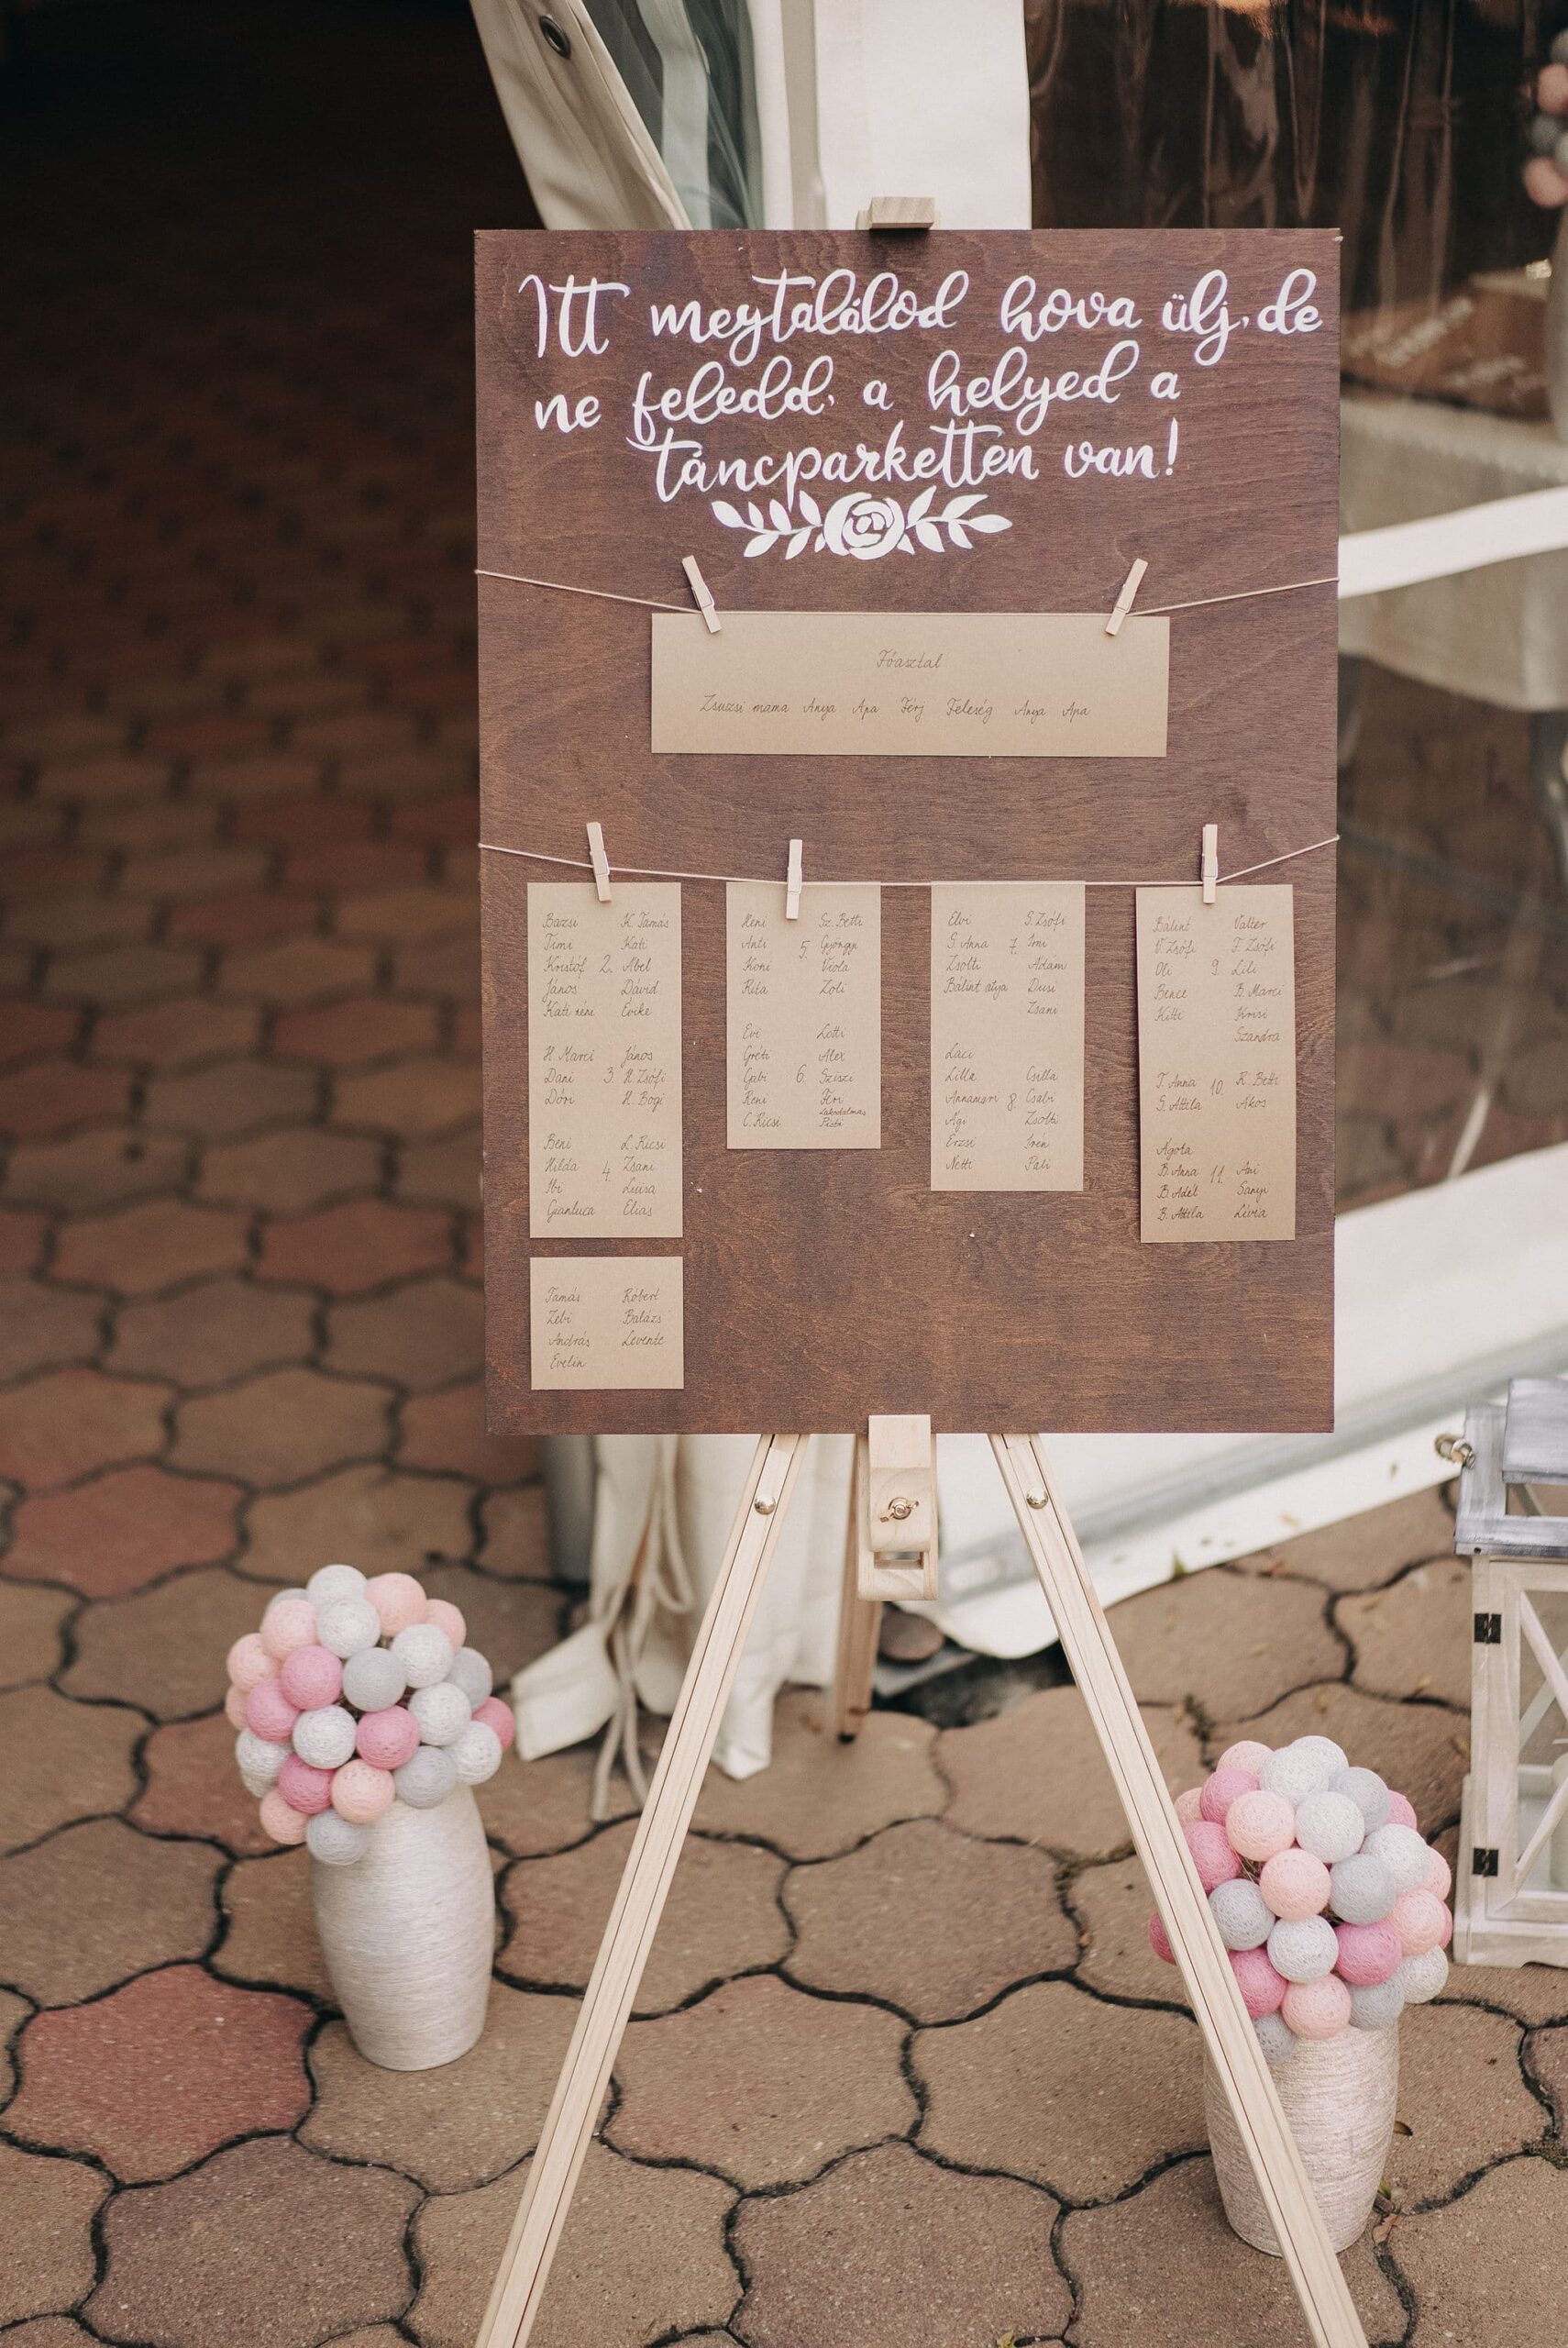 Itt megtalálod hova ülj, de
ne feledd, a helyed a
táncparketten van!
Főasztal
Zsuzsi mama Anya Apa Férj Feleség Anya Apa
Bazsi K. Tamás
Timi Kati
Kristóf 2. Ábel
János Dávid
Kati néni Evike
H. Marci János
Dani 3. H. Zsófi
Dóri H. Bogi
Beni L. Ricsi
Hilda 4. Zsani
Ibi Luisa
Gianluca Elias
Tamás Róbert
Zebi Balázs
András Levente
Evelin
Heni Sz. Betti
Anti 5. Gyöngyi
Koni Viola
Rita Zoli
Evi Lotti
Gréti Alex
Gabi 6. Sziszi
Reni Feri
C. Ricsi Lakodalmas
Pisti
Elvi S. Zsófi
S. Anna 7. Imi
Zsolti Ádám
Bálint atya Dusi
Zsani
Laci
Lilla Csilla
Annamari 8. Csabi
Ági Zsolti
Erzsi Iren
Netti Pati
Bálint Valter
V. Zsófi F. Zsófi
Oli 9. Lili
Bence B. Marci
Kitti Krisi
Szandra
T. Anna 10. K. Betti
S. Attila Ákos
Ágota
B. Anna 11. Ani
B. Adél Sanyi
B. Attila Lívia